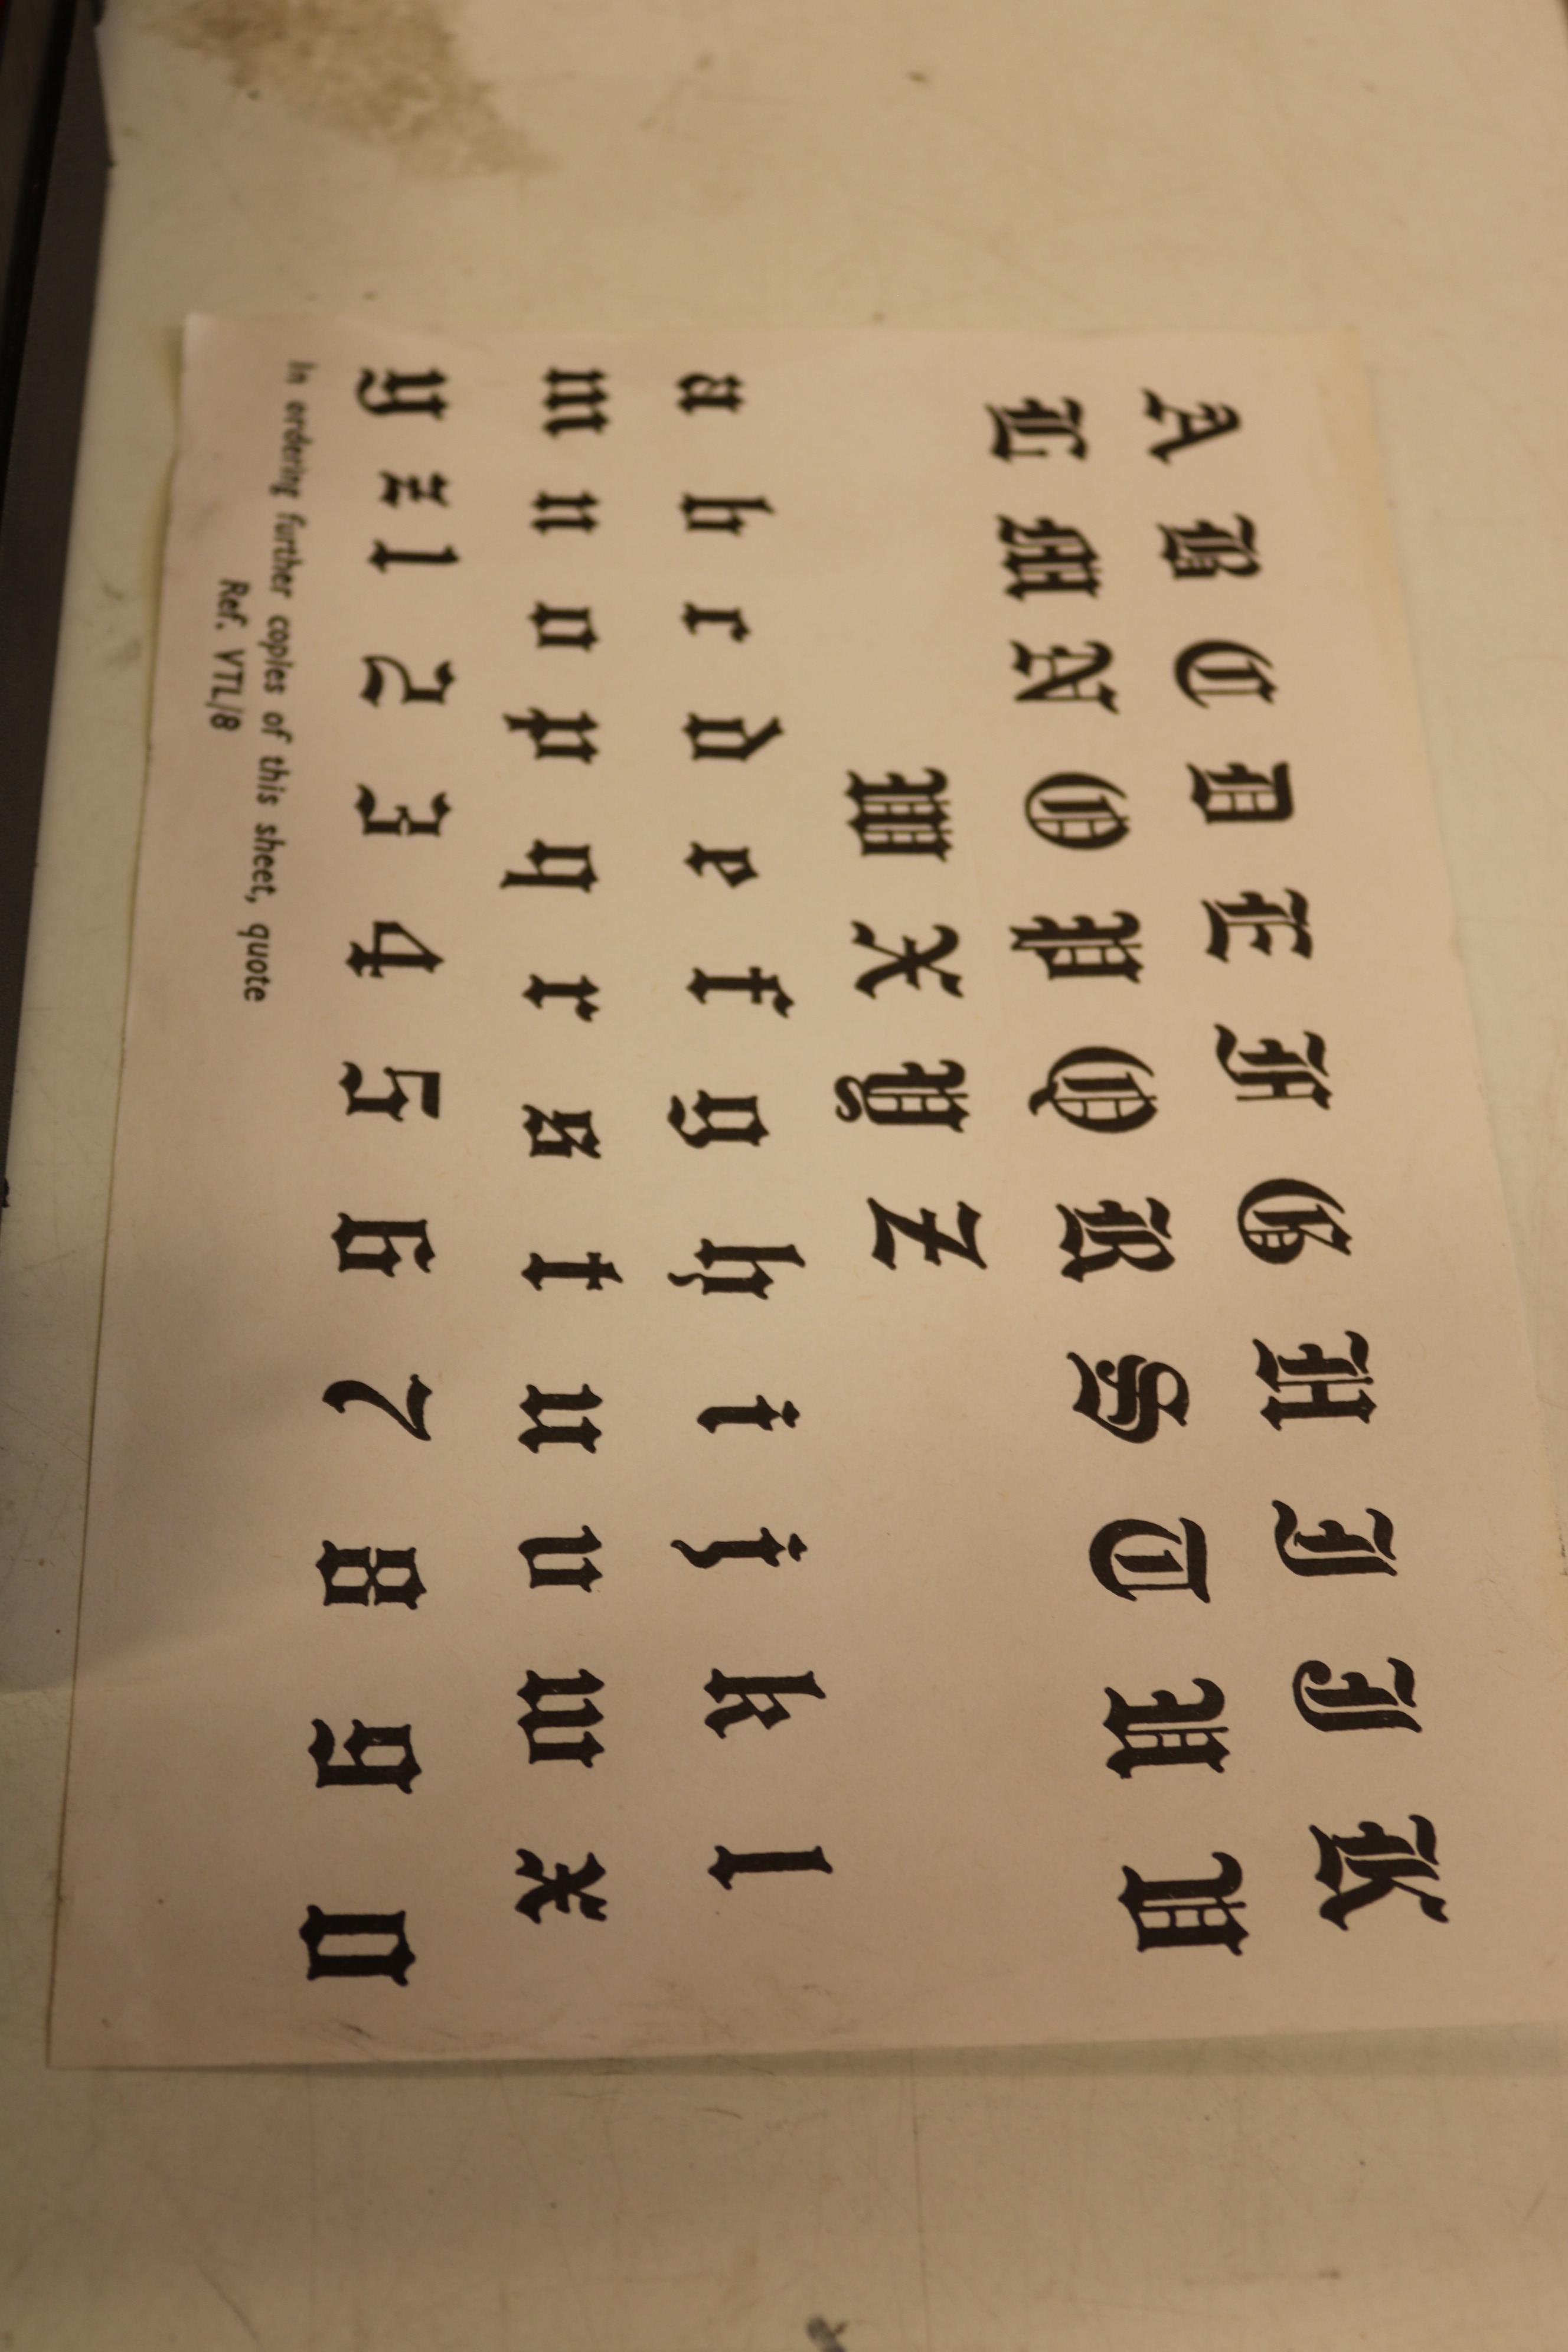 A B C D E F G H I J K
L M N O P Q R S T U V
W X Y Z
a b c d e f g h i j k l
m n o p q r s t u v w x
y z 1 2 3 4 5 6 7 8 9 0
In ordering further copies of this sheet, quote
Ref. VTL/8